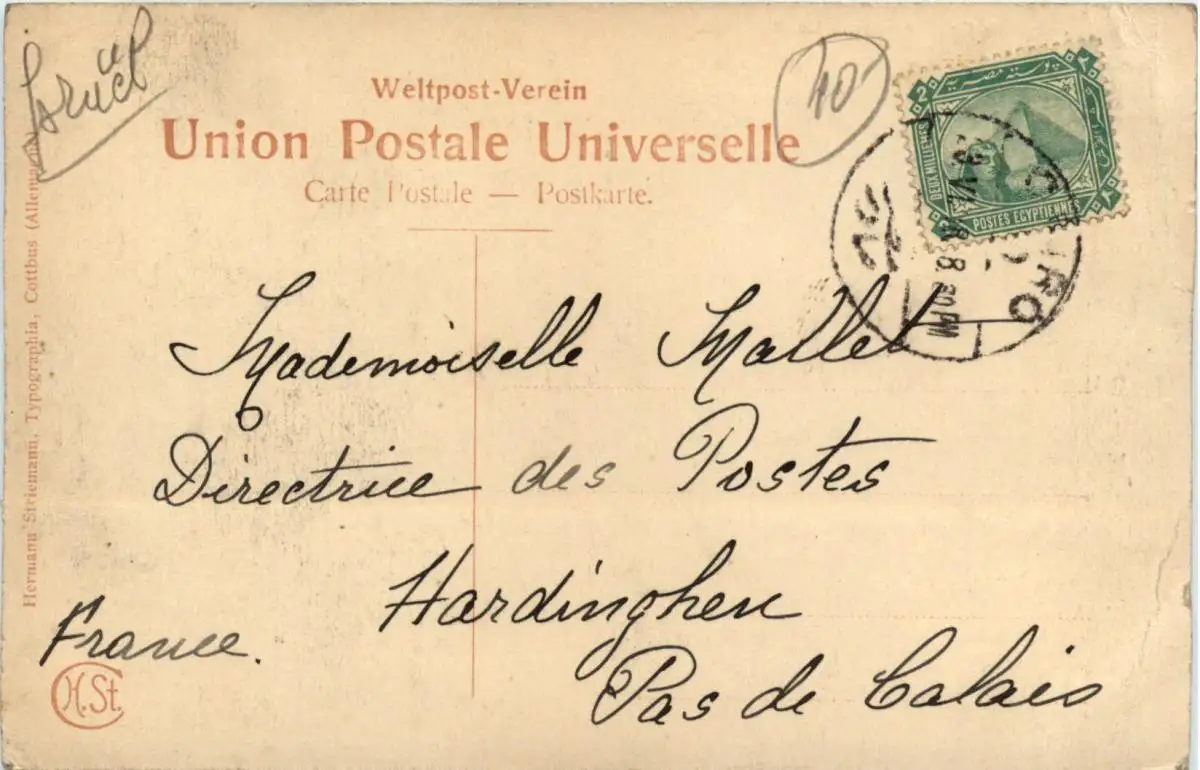 40
Weltpost-Verein
Union Postale Universelle
Carte Postale — Postkarte.
بوستة مصرية
2
DEUX MILLIEMES
POSTES EGYPTIENNES
٢
CAIRO
VI
8 30 PM
Mademoiselle Mallet
Directrice des Postes
Hardinghen
Pas de Calais
France.
Hermann Striemann, Typographia, Cottbus (Allemagne)
H.St.